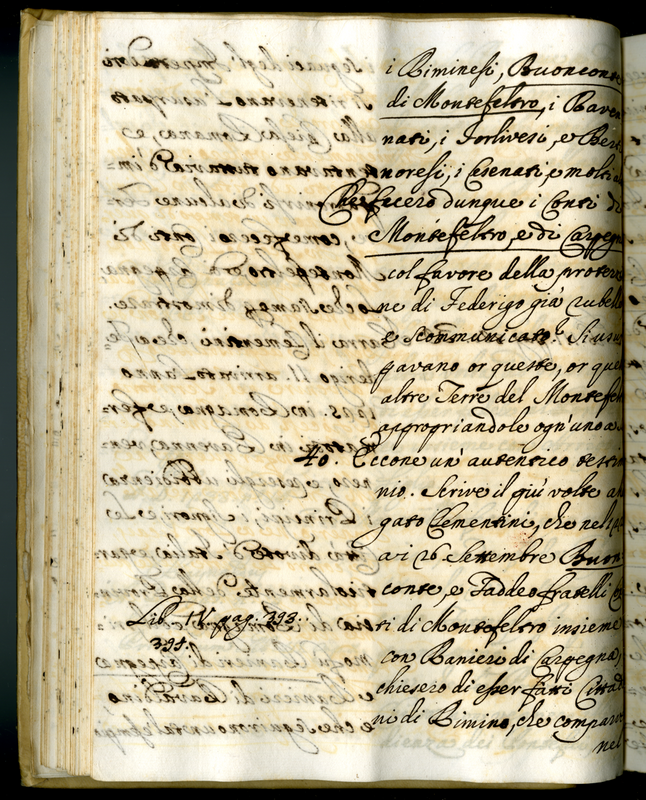 i Riminesi, Buonconte
di Montefeltro, i Raven
nati, i Forlivesi, e Bert
noresi, i Cesenati, e molti al
Che fecero dunque i Conti di
Montefeltro, e di Carpegna
col favore della protezio
ne di Federigo già rubello
e scommunicato? Si usur
pavano or queste, or quell
altre Terre del Montefelt
appropriandole ogn'uno a
40. Eccone un' autentico testimo
nio. Scrive il più volte alle
gato Clementini, che nel
a i 26 Settembre Buon
conte, e Taddeo fratelli Con
Lib. IV. pag. 393.
394.
ti di Montefeltro insieme
con Ranieri di Carpegna,
chiesero di esser fatti Cittadi
ni di Rimino, che comparve
nel